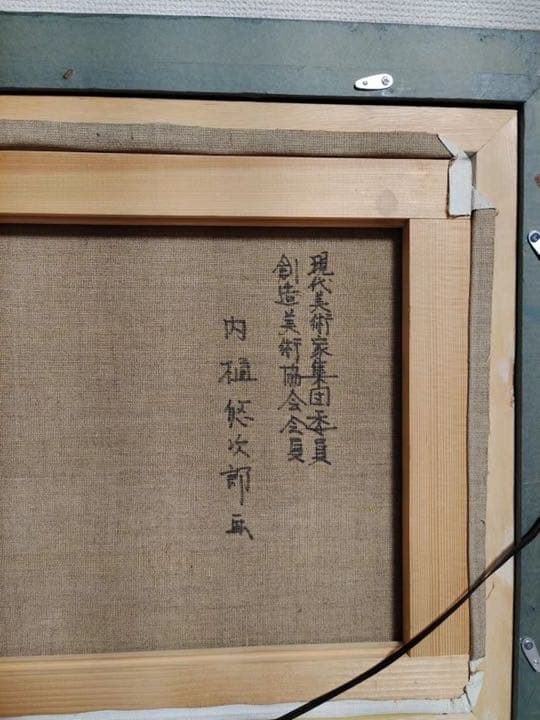 現代美術家集団委員
創造美術協会会員
内植悠次郎画